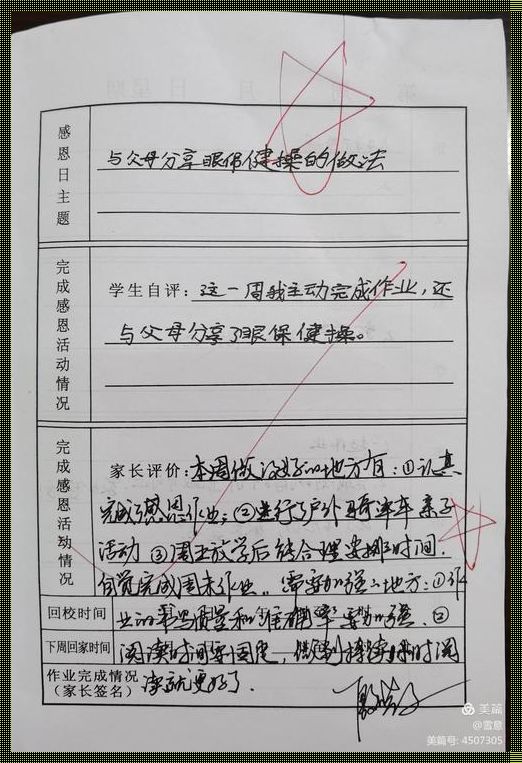 感恩日主题
与父母分享眼保健操的做法
完成感恩活动情况
学生自评：这一周我主动完成作业，还
与父母分享了眼保健操。
完成感恩活动情况
家长评价：本周做得好的地方有：①认真
完成感恩作业；②进行了户外骑单车亲子
活动 ③周五放学后结合理安排了时间，
自觉完成周末作业。需要加强的地方：①作
回校时间
业的书写质量和准确率要加强 ②
下周回家时间
阅读时间要固定，做到持续
作业完成情况
（家长签名）
读就更好了。
美篇
@雪意
美篇号: 4507305